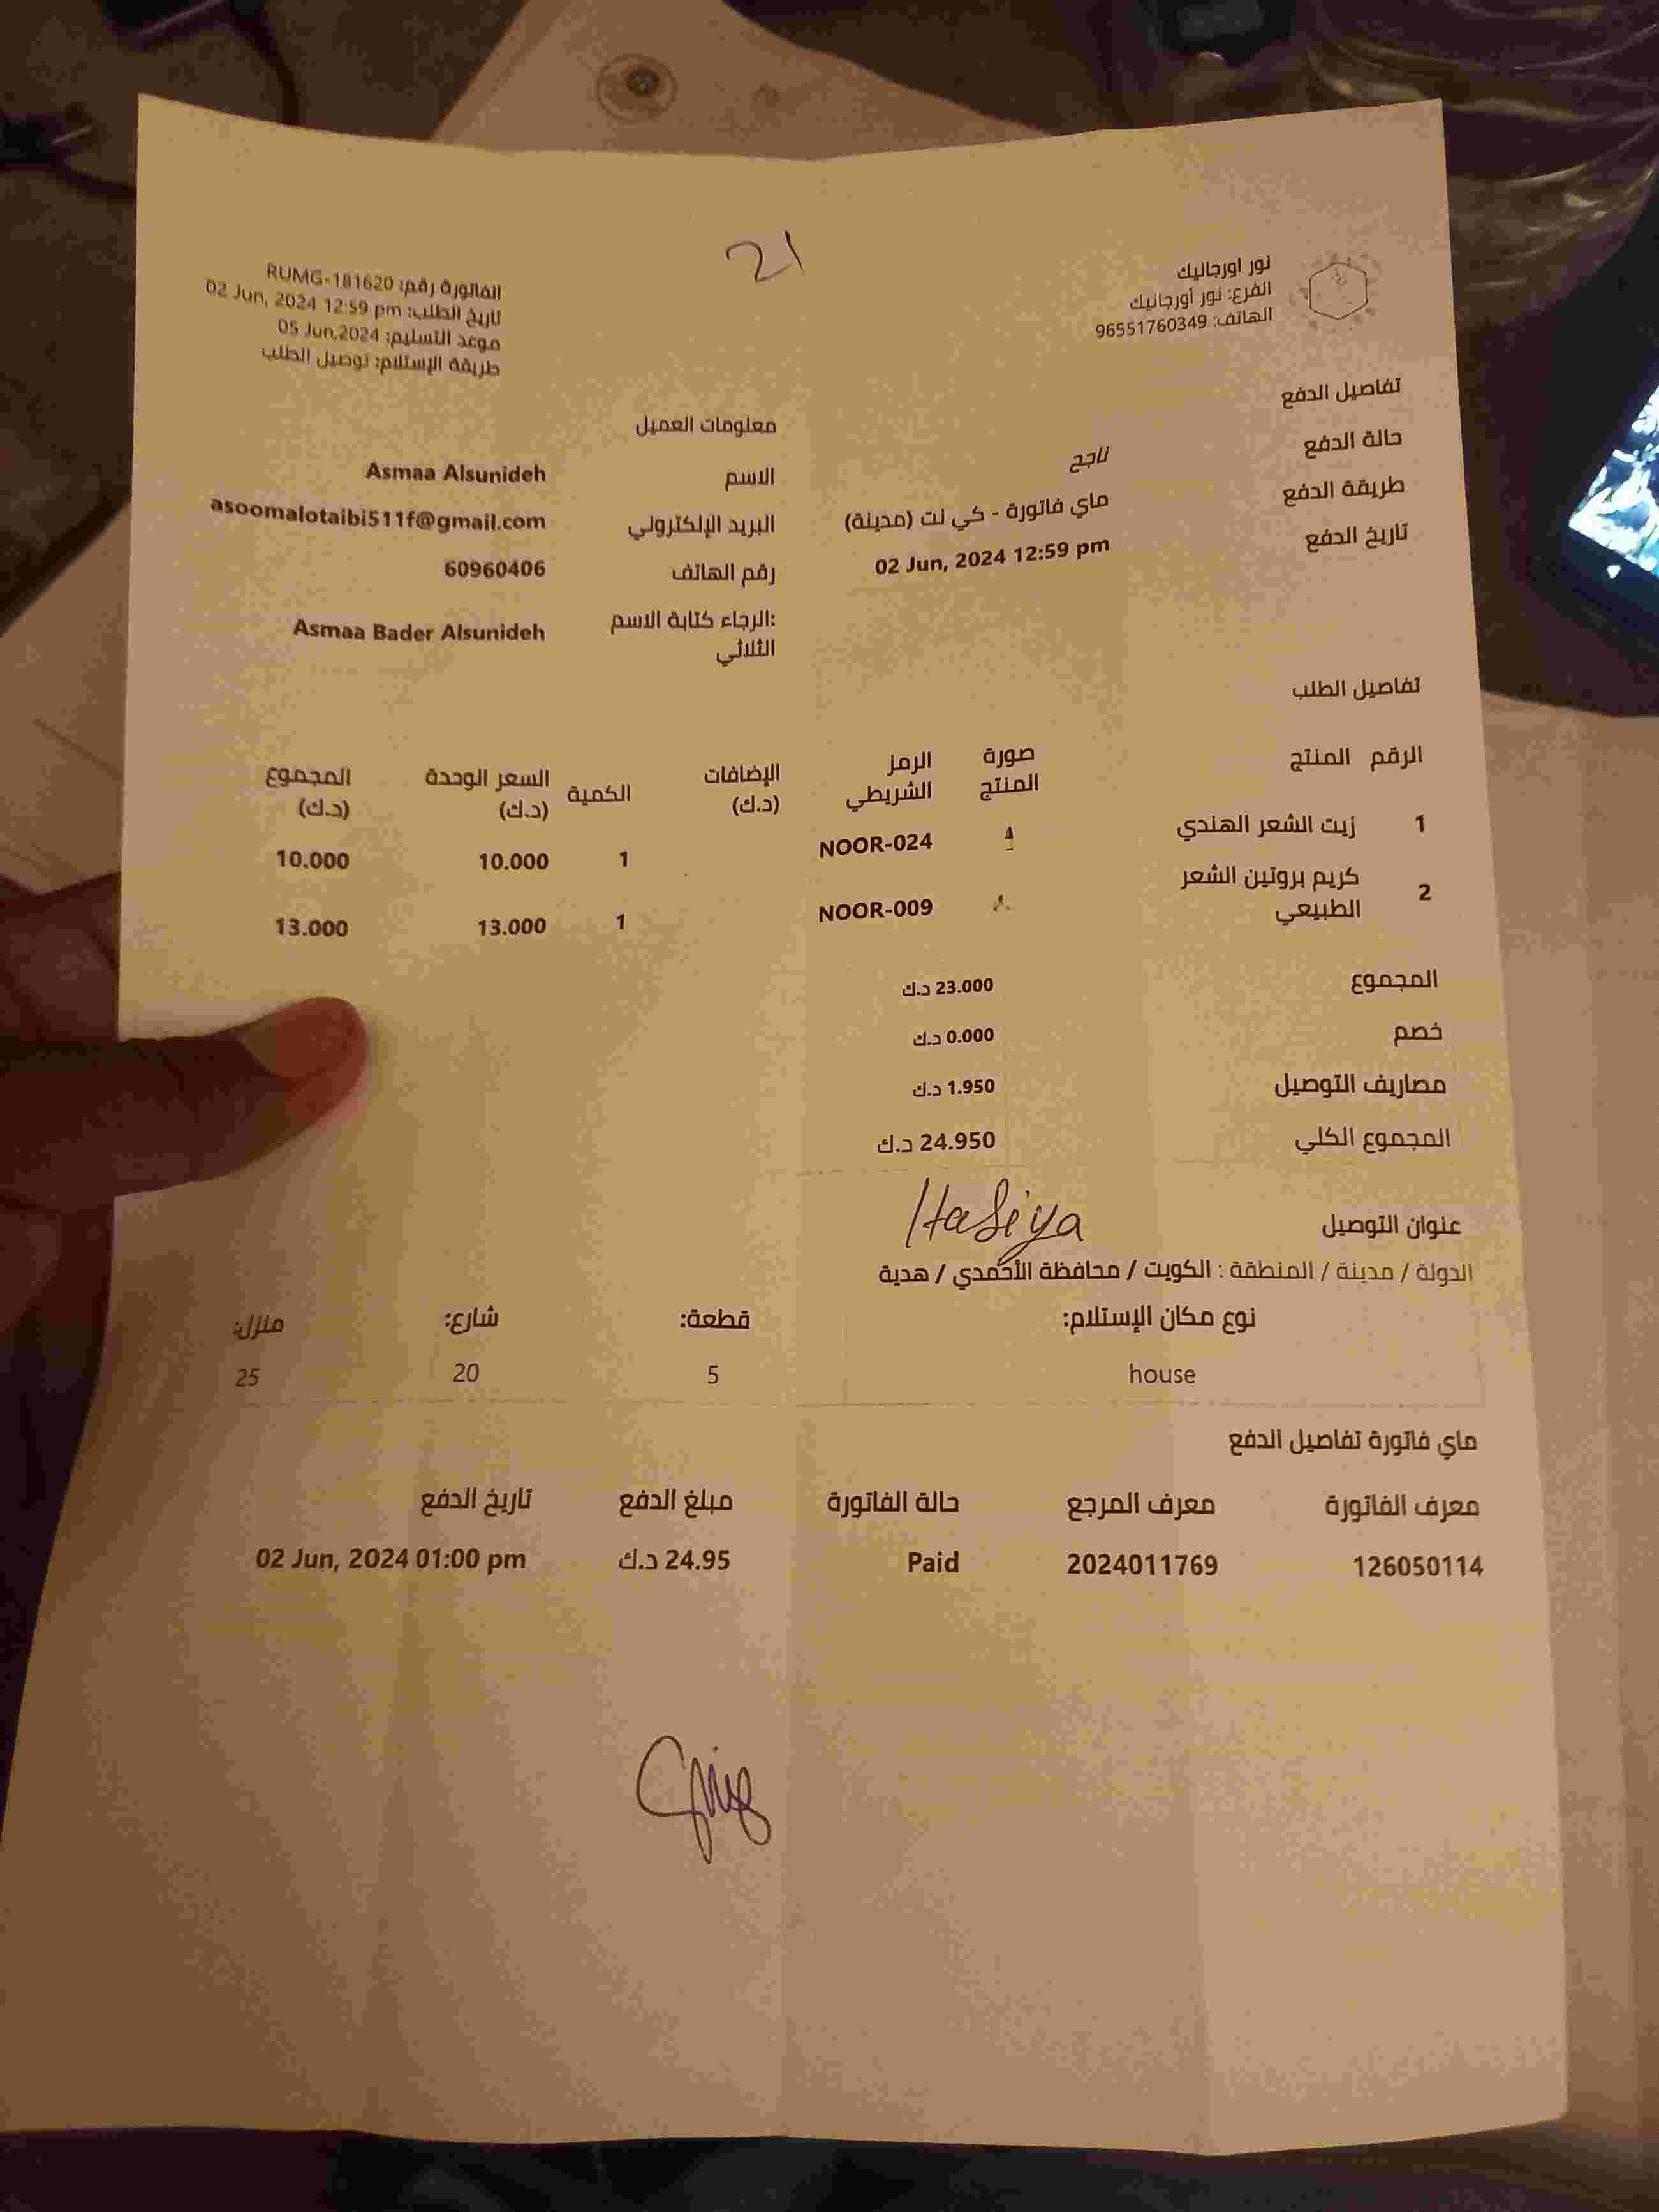 21
نور اورجانيك
الفرع: نور أورجانيك
الهاتف: 96551760349
الفاتورة رقم: RUMG-181620
تاريخ الطلب: 02 Jun, 2024 12:59 pm
موعد التسليم: 05 Jun,2024
طريقة الإستلام: توصيل الطلب
تفاصيل الدفع
حالة الدفع ناجح
طريقة الدفع ماي فاتورة - كي نت (مدينة)
تاريخ الدفع 02 Jun, 2024 12:59 pm
معلومات العميل
الاسم Asmaa Alsunideh
البريد الإلكتروني asoomalotaibi511f@gmail.com
رقم الهاتف 60960406
الرجاء كتابة الاسم: Asmaa Bader Alsunideh
الثلاثي
تفاصيل الطلب
الرقم المنتج صورة المنتج الرمز الشريطي الإضافات (د.ك) الكمية السعر الوحدة (د.ك) المجموع (د.ك)
1 زيت الشعر الهندي NOOR-024 1 10.000 10.000
2 كريم بروتين الشعر الطبيعي NOOR-009 1 13.000 13.000
المجموع 23.000 د.ك
خصم 0.000 د.ك
مصاريف التوصيل 1.950 د.ك
المجموع الكلي 24.950 د.ك
عنوان التوصيل
الدولة / مدينة / المنطقة : الكويت / محافظة الأحمدي / هدية
نوع مكان الإستلام: قطعة: شارع: منزل:
house 5 20 25
ماي فاتورة تفاصيل الدفع
معرف الفاتورة معرف المرجع حالة الفاتورة مبلغ الدفع تاريخ الدفع
126050114 2024011769 Paid 24.95 د.ك 02 Jun, 2024 01:00 pm